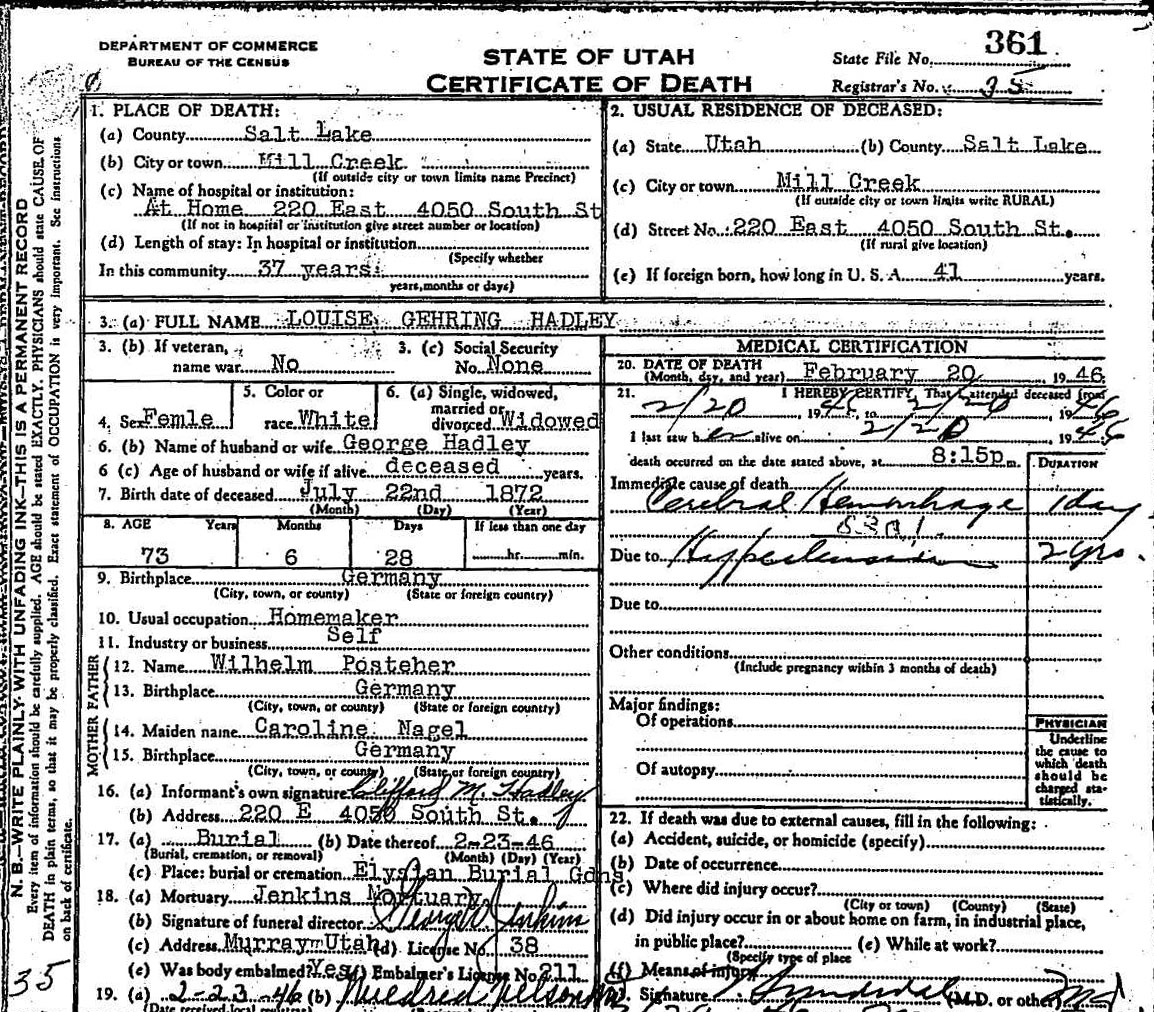 DEPARTMENT OF COMMERCE
BUREAU OF THE CENSUS
STATE OF UTAH
CERTIFICATE OF DEATH
State File No. 361
Registrar's No. 35
N. B.—WRITE PLAINLY WITH UNFADING INK—THIS IS A PERMANENT RECORD
Every item of information should be carefully supplied. AGE should be stated EXACTLY. PHYSICIANS should state CAUSE OF
DEATH in plain terms, so that it may be properly classified. Exact statement of OCCUPATION is very important. See instructions
on back of certificate.
35
1. PLACE OF DEATH:
(a) County Salt Lake
(b) City or town Mill Creek
(If outside city or town limits name Precinct)
(c) Name of hospital or institution:
At Home 220 East 4050 South St
(If not in hospital or institution give street number or location)
(d) Length of stay: In hospital or institution
(Specify whether
In this community 37 years
years, months or days)
2. USUAL RESIDENCE OF DECEASED:
(a) State Utah (b) County Salt Lake
(c) City or town Mill Creek
(If outside city or town limits write RURAL)
(d) Street No. 220 East 4050 South St.
(If rural give location)
(e) If foreign born, how long in U. S. A. 41 years.
3. (a) FULL NAME LOUISE GEHRING HADLEY
3. (b) If veteran, name war No
3. (c) Social Security No. None
4. Sex Femle
5. Color or race White
6. (a) Single, widowed, married or divorced Widowed
6. (b) Name of husband or wife George Hadley
6 (c) Age of husband or wife if alive deceased years.
7. Birth date of deceased July 22nd 1872
(Month) (Day) (Year)
8. AGE Years Months Days If less than one day
73 6 28 hr. min.
9. Birthplace Germany
(City, town, or county) (State or foreign country)
10. Usual occupation Homemaker
11. Industry or business Self
FATHER
12. Name Wilhelm Posteher
13. Birthplace Germany
(City, town, or county) (State or foreign country)
MOTHER
14. Maiden name Caroline Nagel
15. Birthplace Germany
(City, town, or county) (State or foreign country)
16. (a) Informant's own signature Clifford M. Hadley
(b) Address 220 E 4050 South St.
17. (a) Burial (b) Date thereof 2-23-46
(Burial, cremation, or removal) (Month) (Day) (Year)
(c) Place: burial or cremation Elysian Burial Gdns
18. (a) Mortuary Jenkins Mortuary
(b) Signature of funeral director George Jenkins
(c) Address Murray Utah (d) License No. 38
(e) Was body embalmed? Yes (f) Embalmer's License No. 211
19. (a) 2-23-46 (b) Mildred Nelson
(Date received local
MEDICAL CERTIFICATION
20. DATE OF DEATH
(Month, day, and year) February 20, 1946
21. I HEREBY CERTIFY, That I attended deceased from
2/20, 1946 to 2/20, 1946
I last saw her alive on 2/20, 1946
death occurred on the date stated above, at 8:15p m.
DURATION
Immediate cause of death
Cerebral Hemorrhage 1 day
Due to Hypertension 2 yrs.
Due to
Other conditions
(Include pregnancy within 3 months of death)
Major findings:
Of operations
Of autopsy
PHYSICIAN
Underline
the cause to
which death
should be
charged sta-
tistically.
22. If death was due to external causes, fill in the following:
(a) Accident, suicide, or homicide (specify)
(b) Date of occurrence
(c) Where did injury occur?
(City or town) (County) (State)
(d) Did injury occur in or about home on farm, in industrial place,
in public place? (e) While at work?
(Specify type of place
(f) Means of injury
Signature (M.D. or other) MD